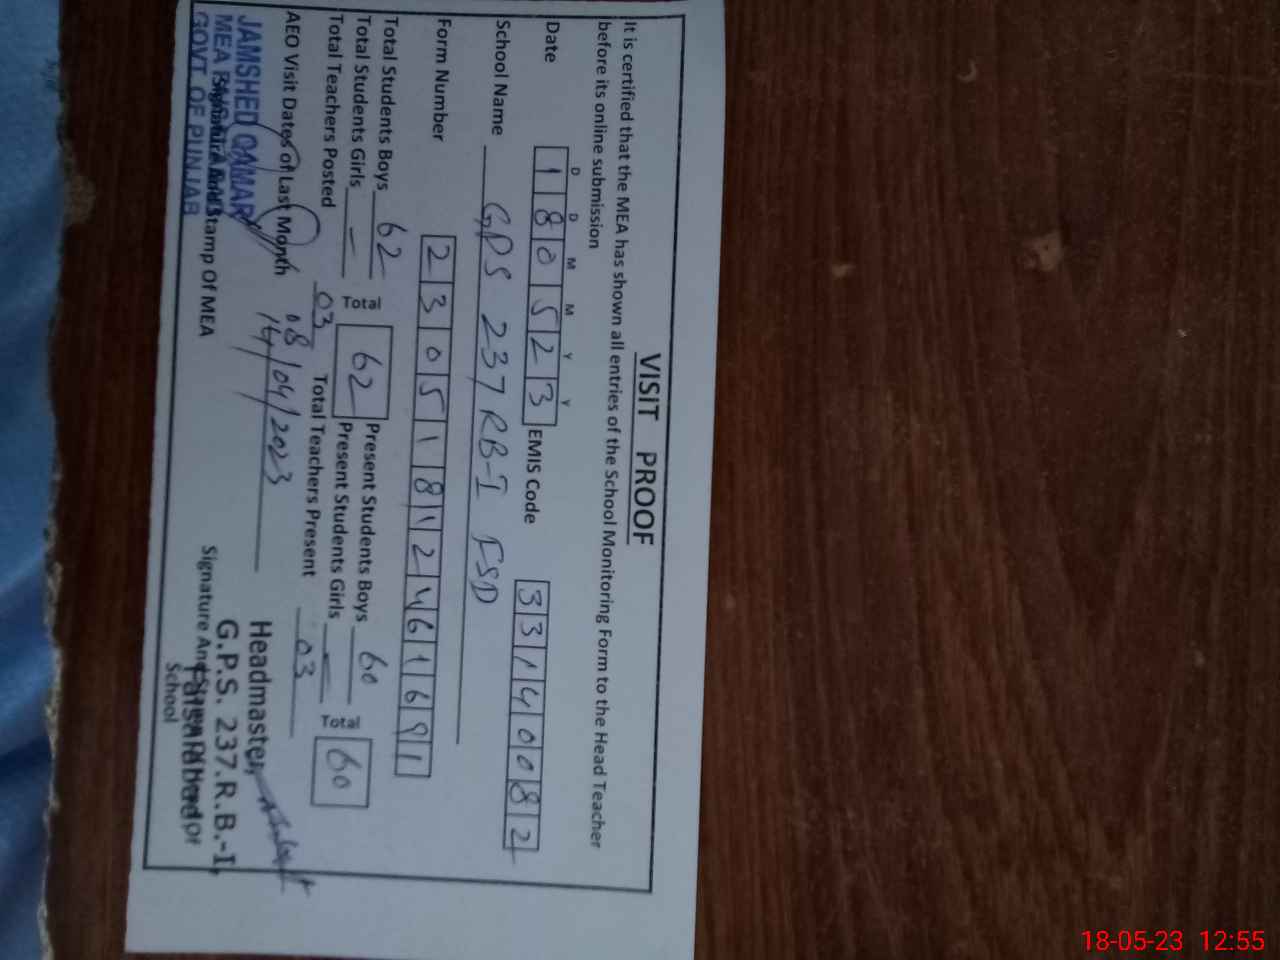 VISIT PROOF
It is certified that the MEA has shown all entries of the School Monitoring Form to the Head Teacher
before its online submission
D D M M Y Y
Date 180523 EMIS Code 33140082
School Name GPS 237 RB-I FSD
Form Number 23051812461691
Total Students Boys 62 Present Students Boys 60
Total Students Girls — Total 62 Present Students Girls — Total 60
Total Teachers Posted 03 Total Teachers Present 03
AEO Visit Dates of Last Month 08/04/2023
14/
JAMSHED QAMAR
MEA
GOVT OF PUNJAB
Signature And Stamp Of MEA
Headmaster,
G.P.S. 237.R.B.-I,
Faisalabad
Signature And Stamp Of Head of
School
18-05-23 12:55